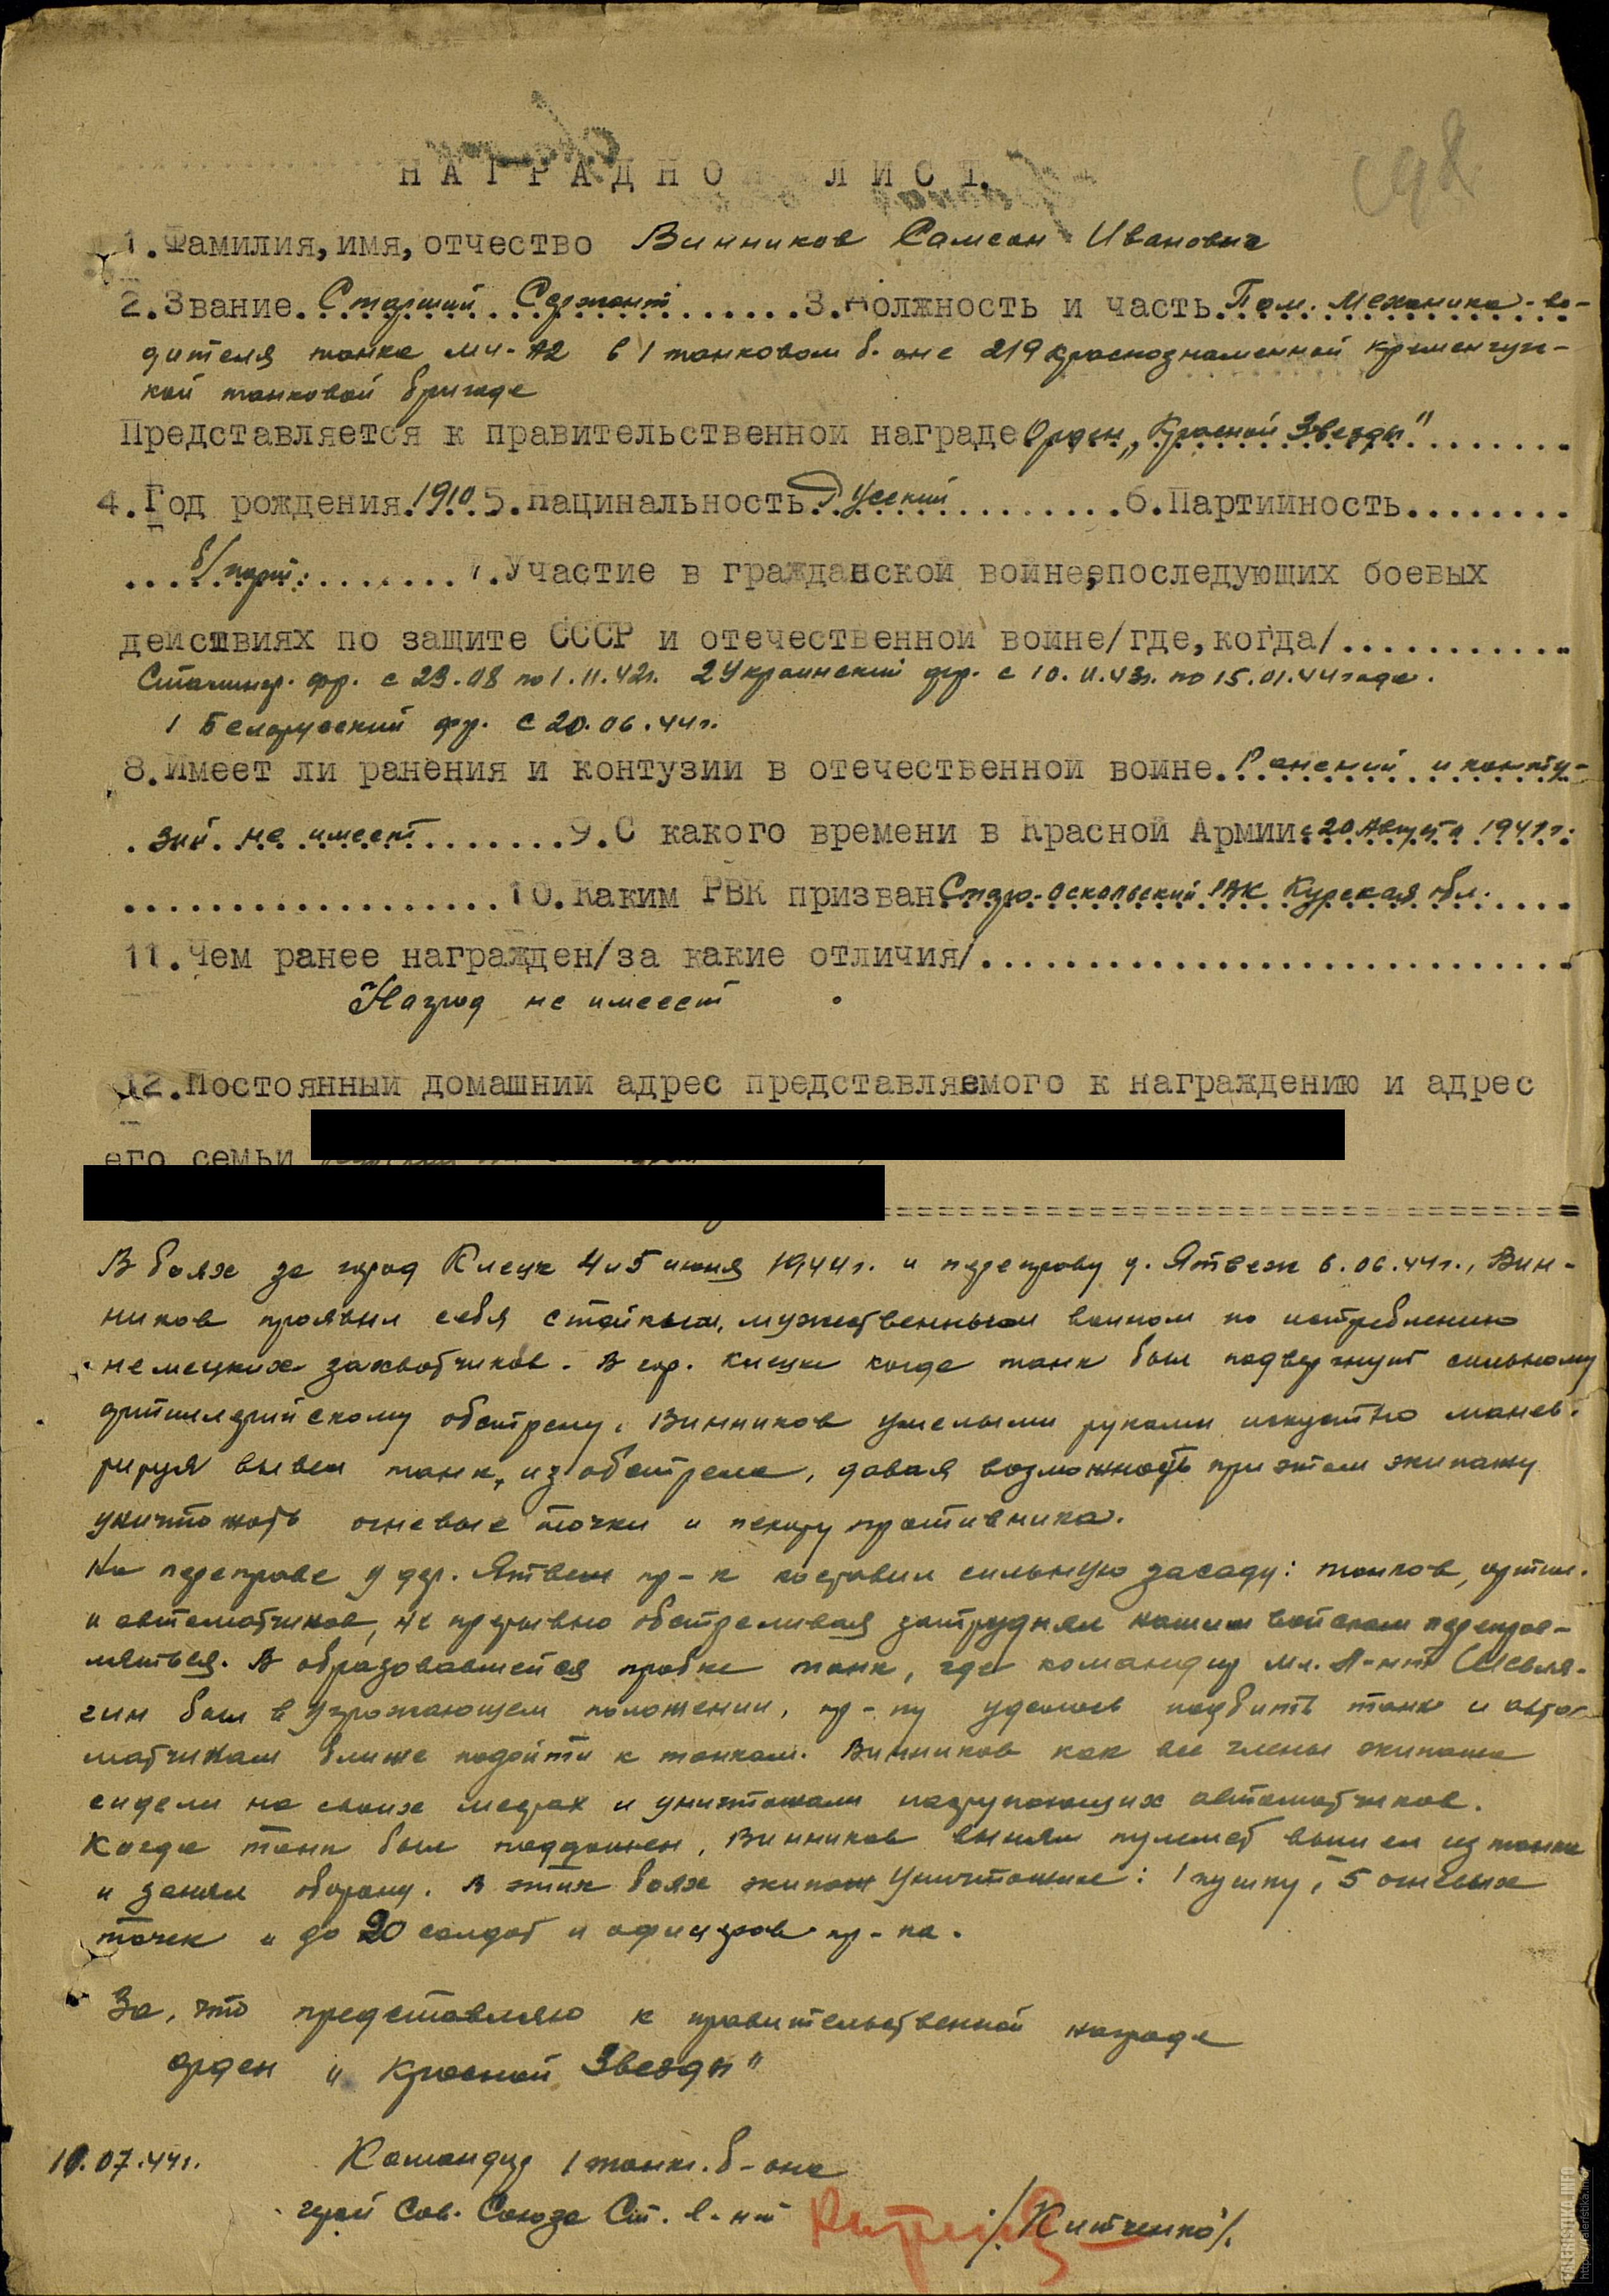 НАГРАДНОЙ ЛИСТ.
1.Фамилия,имя,отчество Винников Самсон Иванович
2.Звание. Старший Сержант 3.Должность и часть. Пом. механика-во-
дителя танка мч-А2 в 1 танковом б.оне 219 краснознаменной кременчуг-
кой танковой бригаде
Представляется к правительственной награде Орден „Красной Звезды"
4.Год рождения.1910 5.Нацинальность. Русский 6.Партийность........
б/парт. 7.Участие в гражданской войне,последующих боевых
действиях по защите СССР и отечественной войне/где,когда/...........
Сталингр. фр. с 23.08 по 1.11.42г. 2 Украинский фр. с 10.11.43г. по 15.01.44 года.
1 Белорусский фр. с 20.06.44г.
8.Имеет ли ранения и контузии в отечественной войне. Ранений и конту-
зий не имеет 9.С какого времени в Красной Армии с 20 Августа 1941г.
10.Каким РВК призван Старо-оскольский РВК Курская обл.
11.Чем ранее награжден/за какие отличия/
Наград не имеест
12.Постоянный домашний адрес представляемого к награждению и адрес
его семьи
В боях за город Клецк 4 и 5 июня 1944г. и переправу д. Ятвеж 6.06.44г., Вин-
ников проявил себя стойким, мужественным воином по истреблению
немецких захватчиков. В гор. Клецк когда танк был подвергнут сильному
артиллерийскому обстрелу, Винников умелыми руками искуство манев-
рируя вывел танк, из обстрела, давая возможность при этом экипажу
уничтожать огневые точки и пехоту противника.
На переправе у дер. Ятвеж пр-к поставил сильную засаду: танков, артил.
и автоматчиков, не прерывно обстреливая затруднял нашим войскам переправ-
ляться. В образовавшейся пробке танк, где командир мл. л-нт Шевля-
гин был в угрожающем положении, пр-ку удалось подбить танк и авто-
матчикам ближе подойти к танкам. Винников как все члены экипажа
сидели на своих местах и уничтожали наступающих автоматчиков.
Когда танк был подожжен, Винников вынял пулемет вышел из танка
и занял оборону. В этих боях экипаж уничтожил: 1 пушку, 5 огневых
точек и до 20 солдат и офицеров пр-ка.
За, что представляю к правительственной награде
орден „Красной Звезды"
10.07.44г. Командир 1 танк. б-она
герой Сов. Союза Ст. л-нт /Китченко/.
FALERISTIKA.INFO